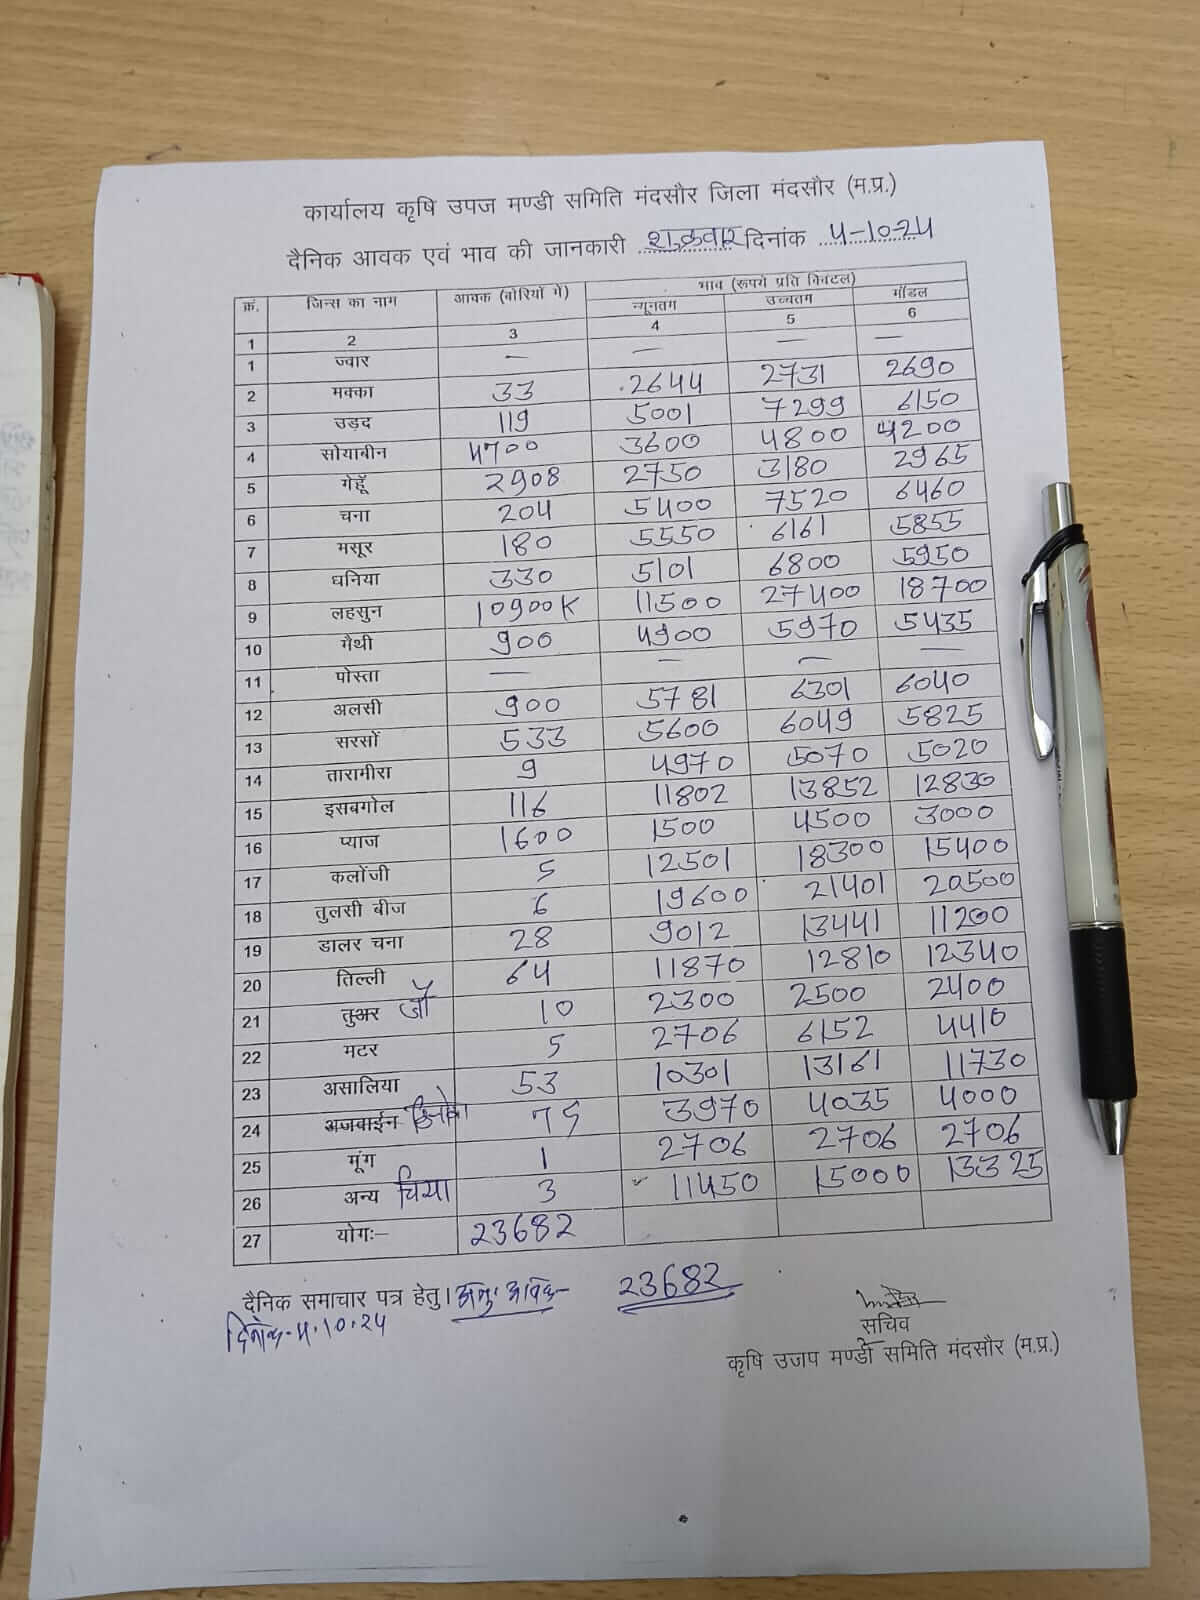 कार्यालय कृषि उपज मण्डी समिति मंदसौर जिला मंदसौर (म.प्र.)
दैनिक आवक एवं भाव की जानकारी शुक्रवार दिनांक 4-10-24
क्रं. जिन्स का नाम आवक (बोरियों में) भाव (रूपये प्रति क्विंटल)
न्यूनतम उच्चतम मॉडल
1 2 3 4 5 6
1 ज्वार — — — —
2 मक्का 33 2644 2731 2690
3 उड़द 119 5001 7299 6150
4 सोयाबीन 4700 3600 4800 4200
5 गेहूँ 2908 2750 3180 2965
6 चना 204 5400 7520 6460
7 मसूर 180 5550 6161 5855
8 धनिया 330 5101 6800 5950
9 लहसुन 10900K 11500 27400 18700
10 मैथी 900 4900 5970 5435
11 पोस्ता — — — —
12 अलसी 900 5781 6301 6040
13 सरसों 533 5600 6049 5825
14 तारामीरा 9 4970 5070 5020
15 इसबगोल 116 11802 13852 12830
16 प्याज 1600 1500 4500 3000
17 कलोंजी 5 12501 18300 15400
18 तुलसी बीज 6 19600 21401 20500
19 डालर चना 28 9012 13441 11200
20 तिल्ली 64 11870 12810 12340
21 तुअर जौ 10 2300 2500 2400
22 मटर 5 2706 6152 4410
23 असालिया 53 10301 13161 11730
24 अजवाईन 75 3970 4035 4000
25 मूंग 1 2706 2706 2706
26 अन्य चिया 3 11450 15000 13325
27 योगः– 23682
दैनिक समाचार पत्र हेतु। 23682
दिनांक-4.10.24
सचिव
कृषि उजप मण्डी समिति मंदसौर (म.प्र.)